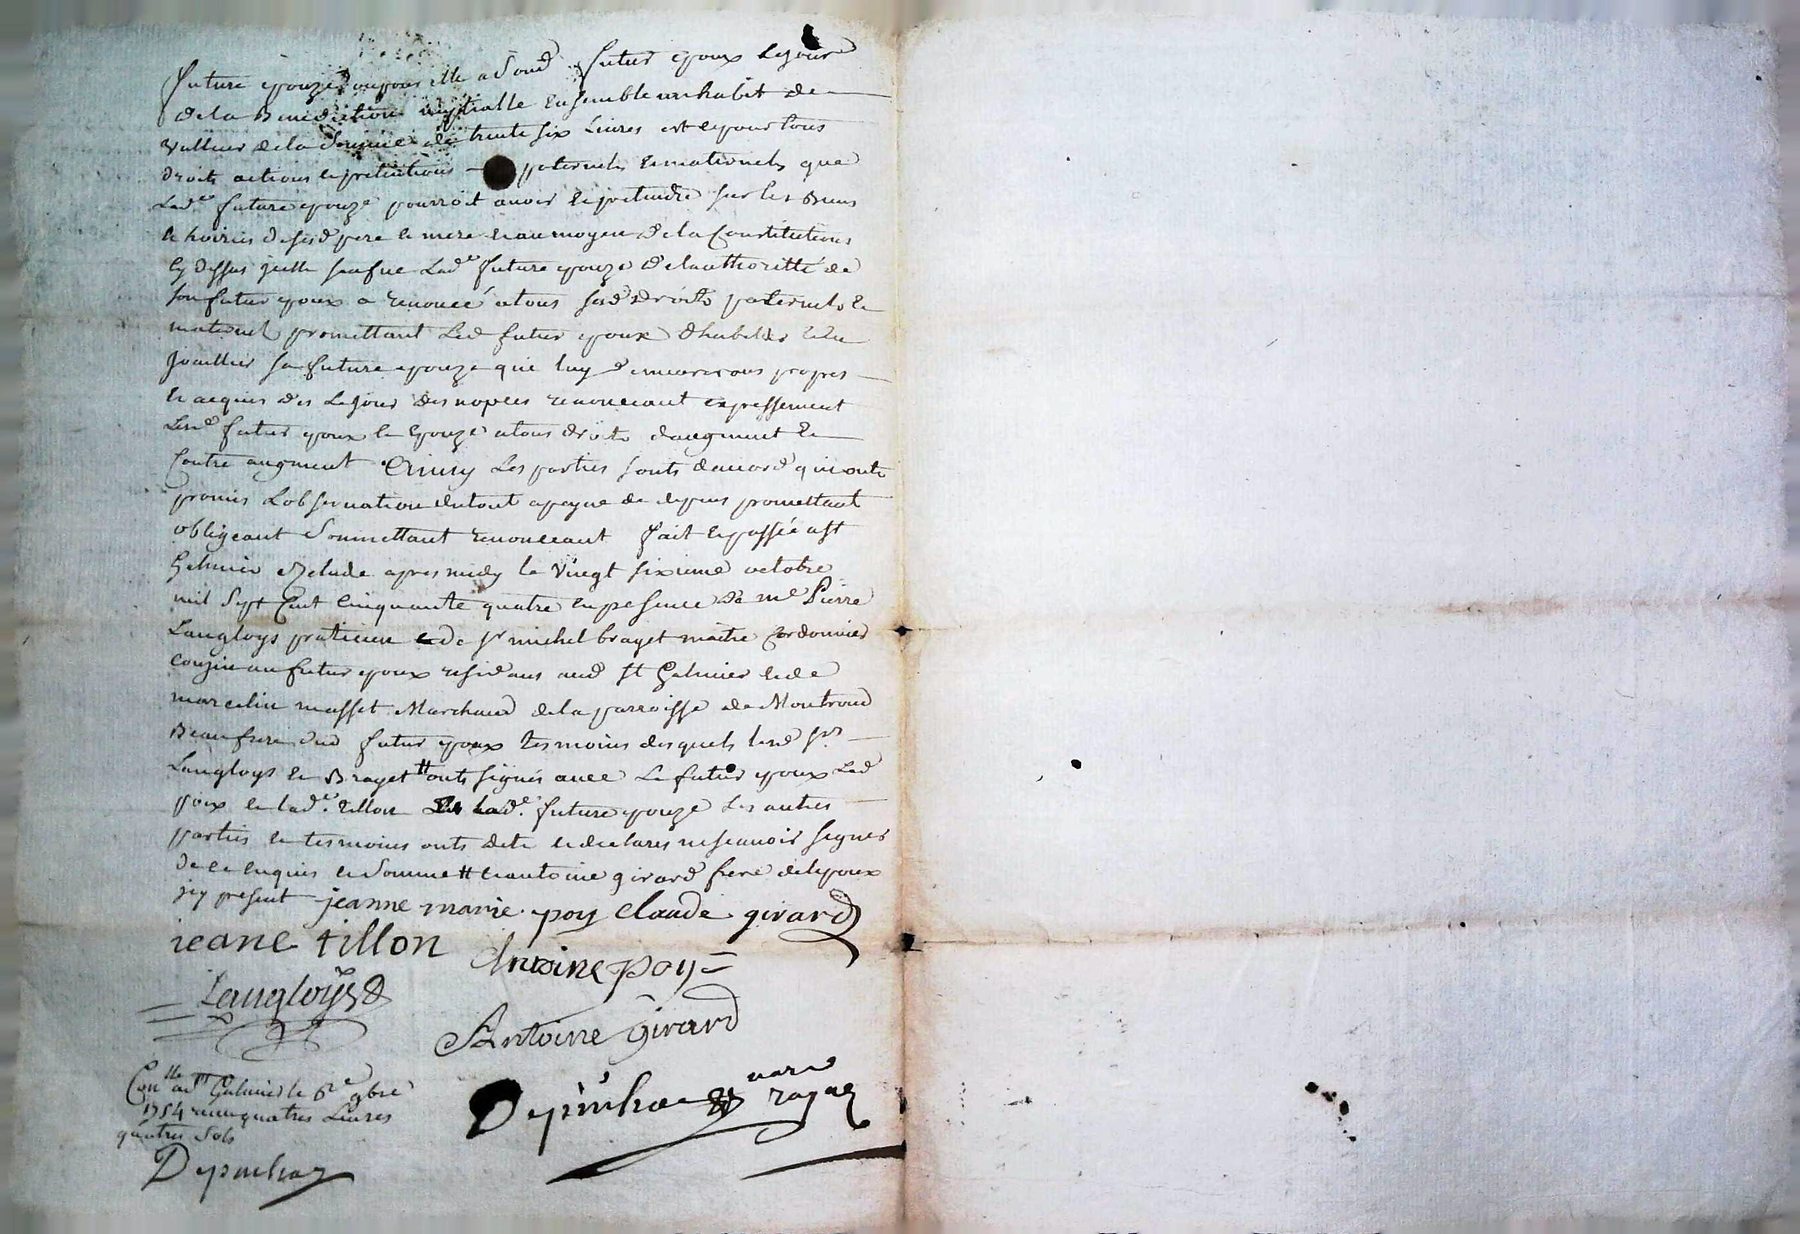 future epouze ou pour elle aud futur epoux le jour
de la Benediction nuptialle ensemble un habit de
valleur de la somme de trente six livres et ce pour tous
droits actions et pretentions paternels et maternels que
lad.e future epouze pourroit avoir et pretendre sur les Biens
et hoiries de sesd pere et mere et au moyen de la Constitutions
cy dessus jcelle lad.e future epouze de lauthoritté de
son futur epoux a renoncé a tous sesd droits paternels et
maternels promettant led futur epoux dhabiller et
joailler sa future epouze que luy demeureront propres
et acquis des le jour des nopces renonceant expressement
lesd futur epoux et Epouze a tous droits daugment et
Contre augment Ainsy les parties sonts daccord qui onts
promis Lobservation du tout a peyne de depens promettant
obligeant soumettant renonceant fait et passé a St
Galmier Etude apres midy le vingt sixieme octobre
mil sept Cent Cinquante quatre en presence de me Pierre
Langloys praticien et de sr michel brayet maitre Cordonnier
Couzin au futur epoux residans aud St Galmier et de
marcelin masset Marchand de la parroisse de Montrond
Beaufrere dud futur epoux tesmoins desquels lesd srs
Langloys et Brayet onts signés avec le futur epoux led
poix et lad.e tillon et lad.e future epouze les autres
parties et tesmoins onts dete et declarés ne scavoir signer
de ce enquis et somme # et antoine girard frere de lepoux
jcy present jeanne marie poy claude girard
ieane tillon Antoine poy
Langloys
Antoine girard
Depiuhac
Conlle a St Galmier le 6e 9bre
1754 receu quatres Livres
quatres sols
Depiuhac